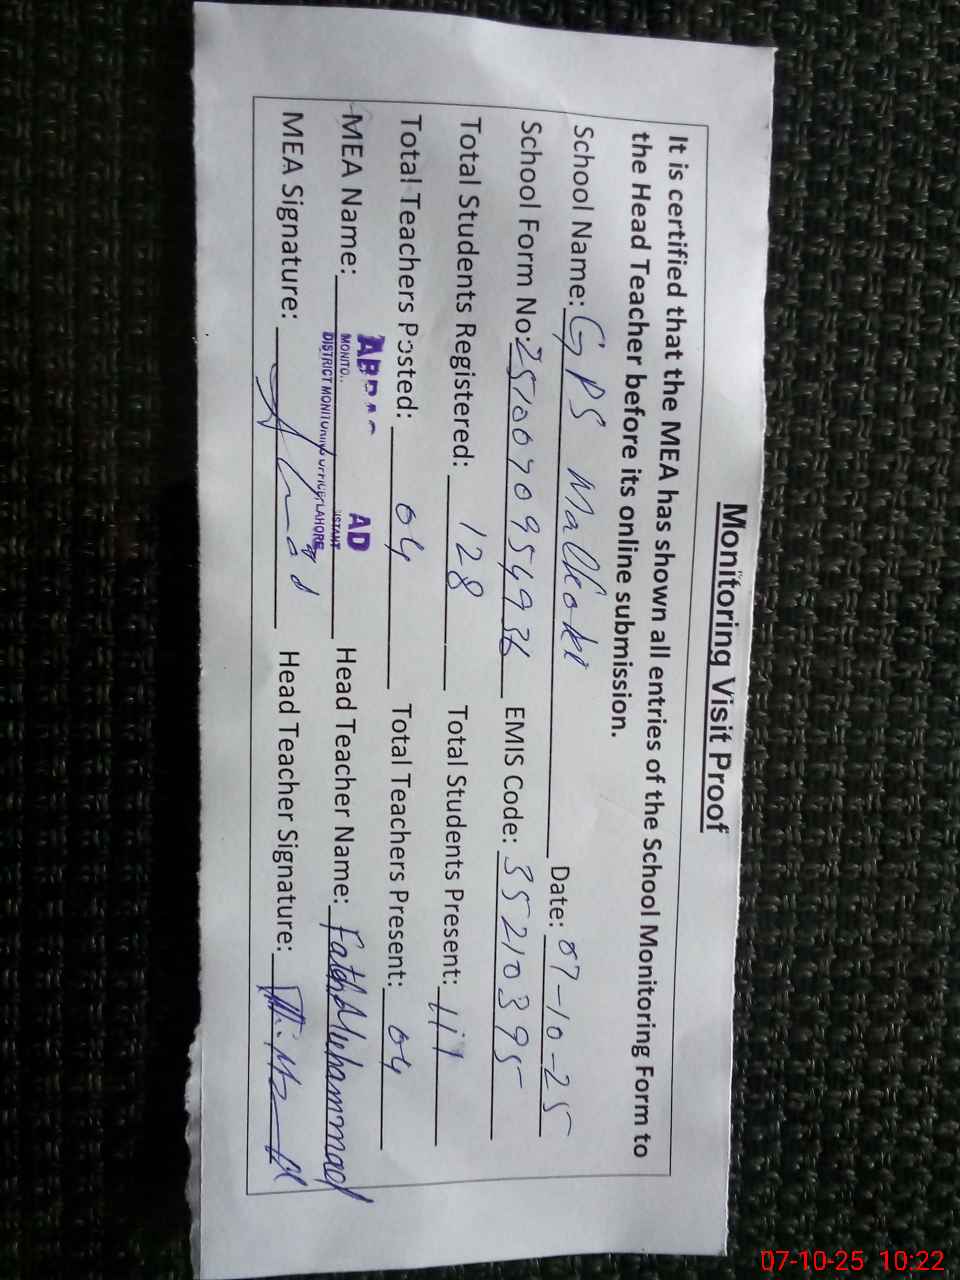 Monitoring Visit Proof
It is certified that the MEA has shown all entries of the School Monitoring Form to
the Head Teacher before its online submission.
School Name: GPS Malkoki Date: 07-10-25
School Form No: EMIS Code: 35210395
Total Students Registered: 128 Total Students Present: 117
Total Teachers Posted: 04 Total Teachers Present: 04
MEA Name: AD Head Teacher Name: Fateh Muhammad
DISTRICT MONITORING OFFICE LAHORE
MEA Signature: Head Teacher Signature:
07-10-25 10:22